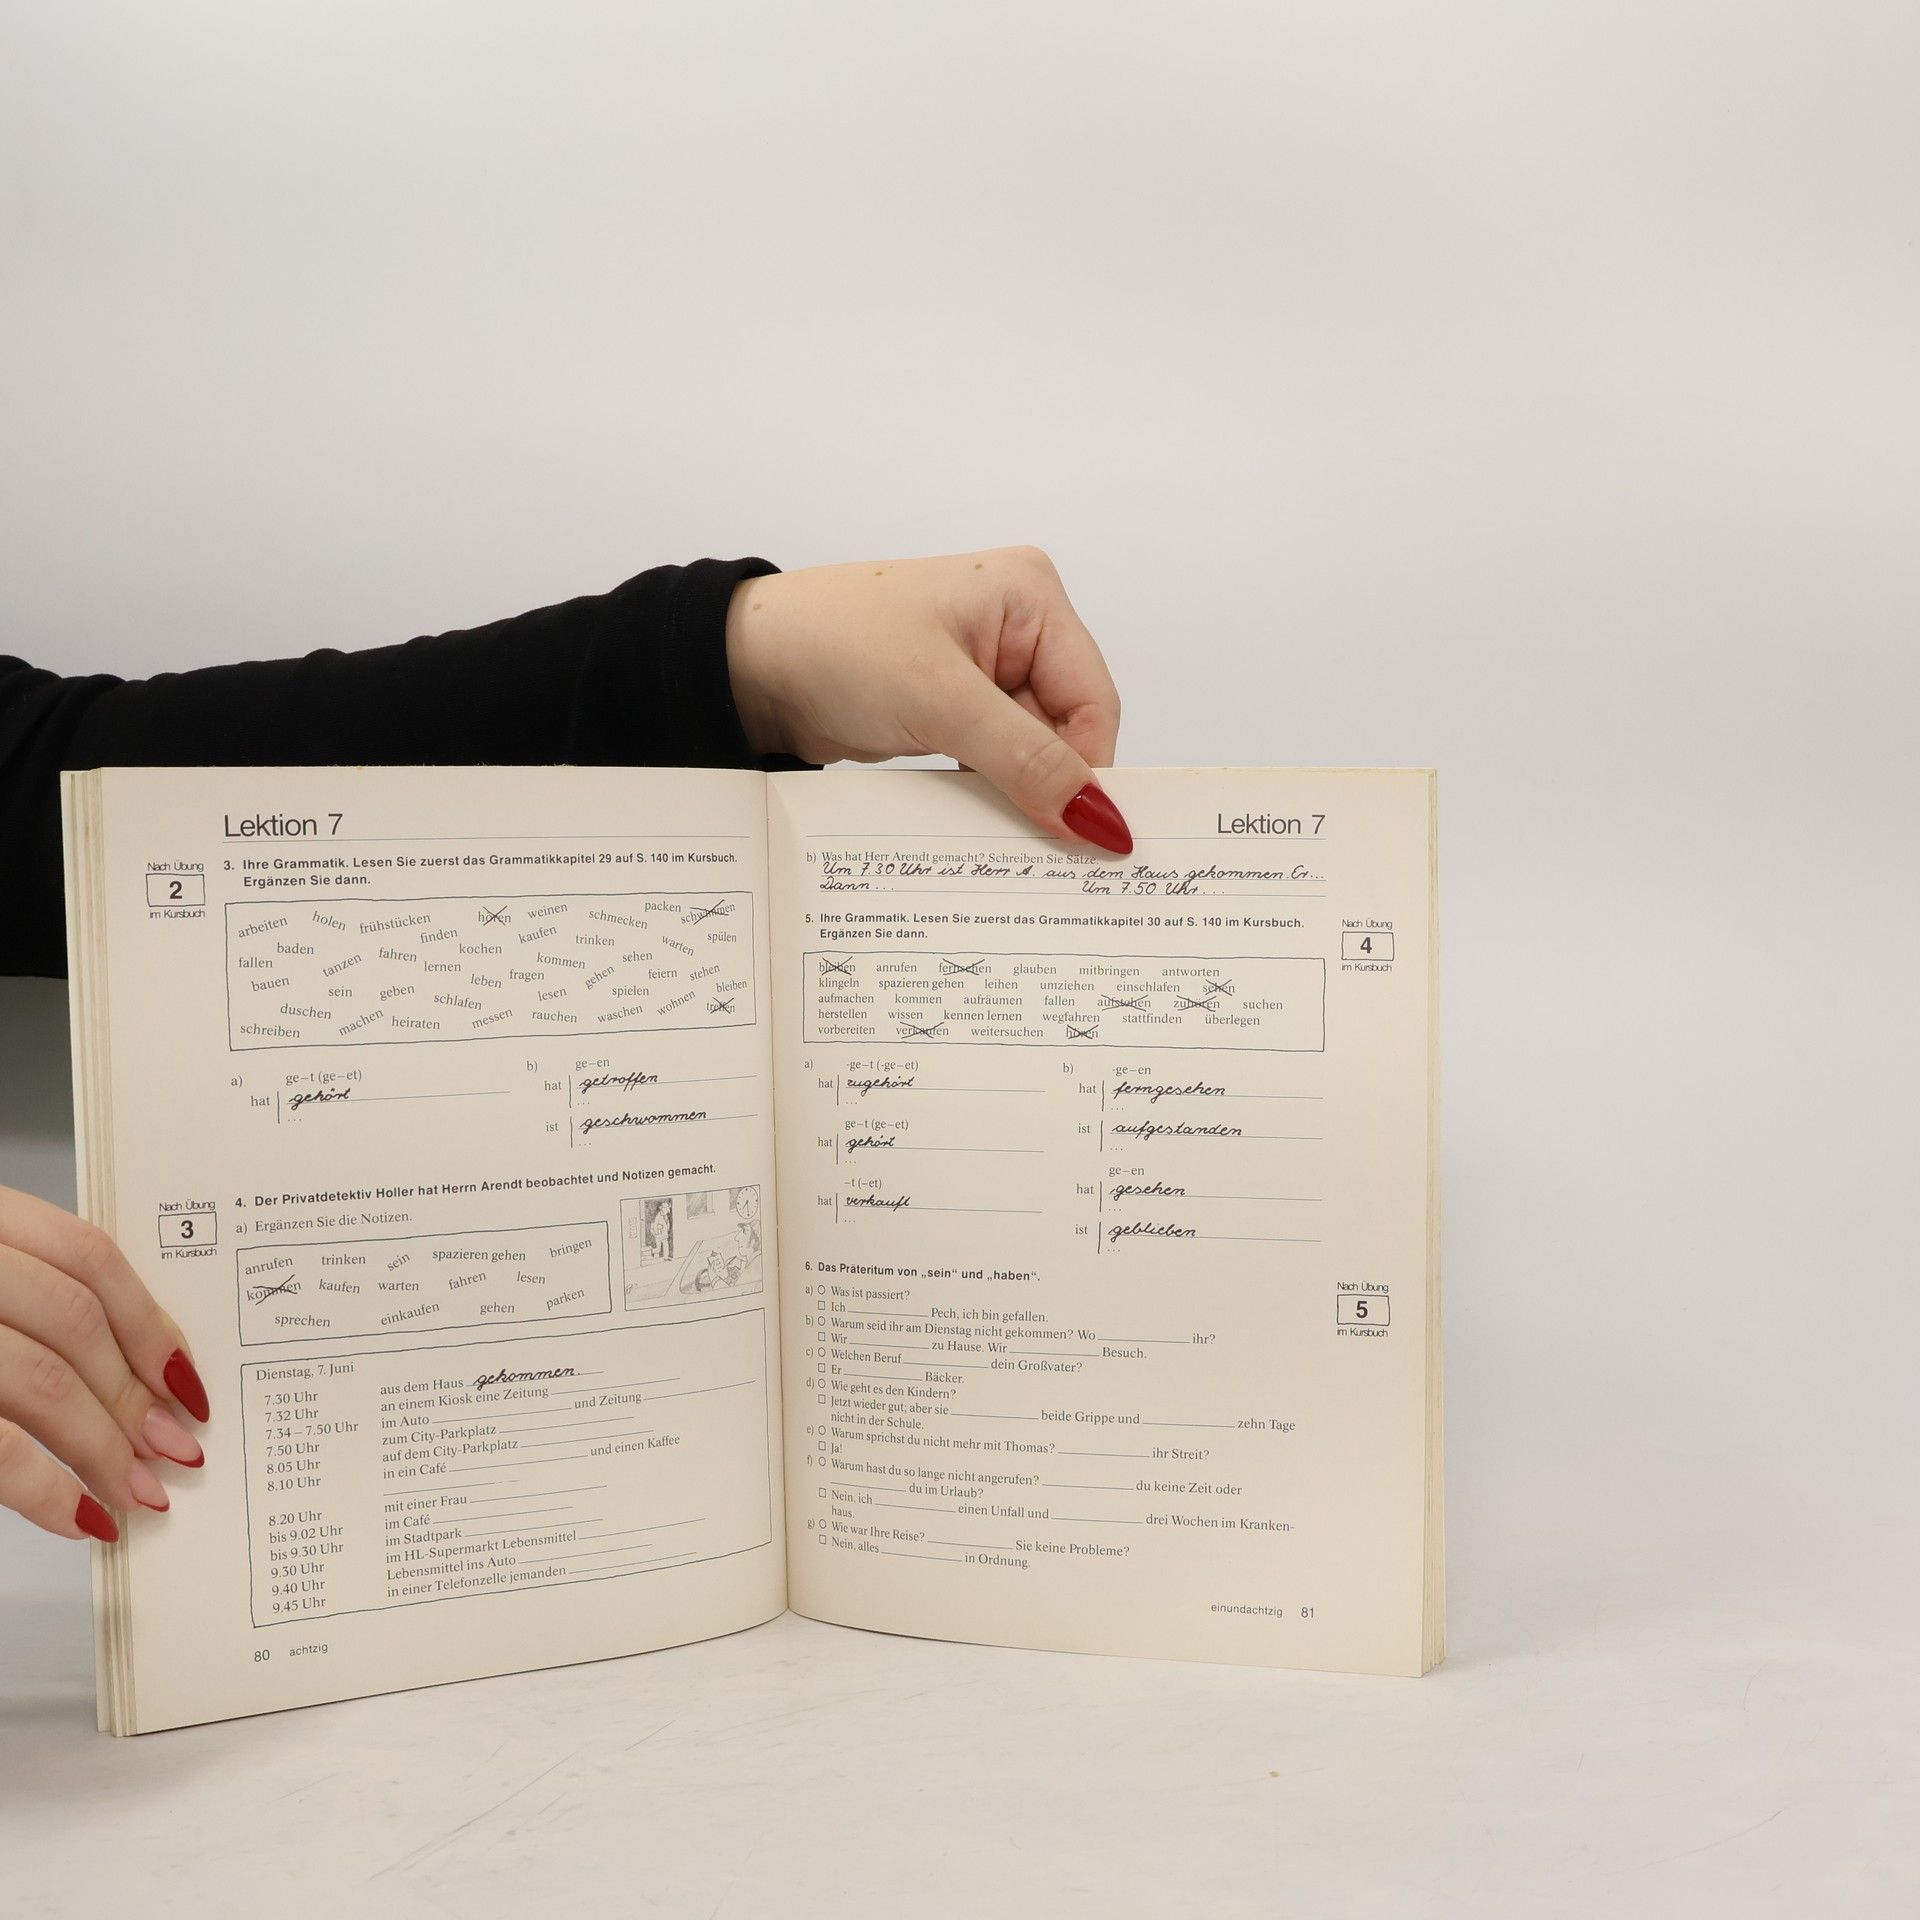 Lektion 7
Nach Übung
2
im Kursbuch
3. Ihre Grammatik. Lesen Sie zuerst das Grammatikkapitel 29 auf S. 140 im Kursbuch.
Ergänzen Sie dann.
arbeiten holen frühstücken hören weinen schmecken packen schwimmen
baden finden kochen kaufen trinken warten spülen
fallen tanzen fahren lernen kommen sehen
bauen leben fragen gehen feiern stehen
sein geben schlafen lesen spielen bleiben
duschen machen heiraten messen rauchen waschen wohnen treffen
schreiben
a) ge–t (ge–et)
hat gehört
...
b) ge–en
hat getroffen
...
ist geschwommen
...
Nach Übung
3
im Kursbuch
4. Der Privatdetektiv Holler hat Herrn Arendt beobachtet und Notizen gemacht.
a) Ergänzen Sie die Notizen.
anrufen trinken sein spazieren gehen bringen
kommen kaufen warten fahren lesen
sprechen einkaufen gehen parken
Dienstag, 7. Juni
7.30 Uhr aus dem Haus gekommen.
7.32 Uhr an einem Kiosk eine Zeitung
7.34 – 7.50 Uhr im Auto und Zeitung
7.50 Uhr zum City-Parkplatz
8.05 Uhr auf dem City-Parkplatz
8.10 Uhr in ein Café und einen Kaffee
8.20 Uhr mit einer Frau
bis 9.02 Uhr im Café
bis 9.30 Uhr im Stadtpark
9.30 Uhr im HL-Supermarkt Lebensmittel
9.40 Uhr Lebensmittel ins Auto
9.45 Uhr in einer Telefonzelle jemanden
80 achtzig
Lektion 7
b) Was hat Herr Arendt gemacht? Schreiben Sie Sätze.
Um 7.30 Uhr ist Herr A. aus dem Haus gekommen. Er...
Dann ... Um 7.50 Uhr ...
Nach Übung
4
im Kursbuch
5. Ihre Grammatik. Lesen Sie zuerst das Grammatikkapitel 30 auf S. 140 im Kursbuch.
Ergänzen Sie dann.
bleiben anrufen fernsehen glauben mitbringen antworten
klingeln spazieren gehen leihen umziehen einschlafen sehen
aufmachen kommen aufräumen fallen aufstehen zuhören suchen
herstellen wissen kennen lernen wegfahren stattfinden überlegen
vorbereiten verkaufen weitersuchen hören
a) -ge–t (-ge–et)
hat zugehört
...
ge–t (ge–et)
hat gehört
...
–t (–et)
hat verkauft
...
b) -ge–en
hat ferngesehen
...
ist aufgestanden
...
ge–en
hat gesehen
...
ist geblieben
...
Nach Übung
5
im Kursbuch
6. Das Präteritum von „sein“ und „haben“.
a) Was ist passiert?
Ich Pech, ich bin gefallen.
b) Warum seid ihr am Dienstag nicht gekommen? Wo ihr?
Wir zu Hause. Wir Besuch.
c) Welchen Beruf dein Großvater?
Er Bäcker.
d) Wie geht es den Kindern?
Jetzt wieder gut; aber sie beide Grippe und zehn Tage
nicht in der Schule.
e) Warum sprichst du nicht mehr mit Thomas? ihr Streit?
Ja!
f) Warum hast du so lange nicht angerufen? du keine Zeit oder
du im Urlaub?
Nein, ich einen Unfall und drei Wochen im Kranken-
haus.
g) Wie war Ihre Reise? Sie keine Probleme?
Nein, alles in Ordnung.
einundachtzig 81